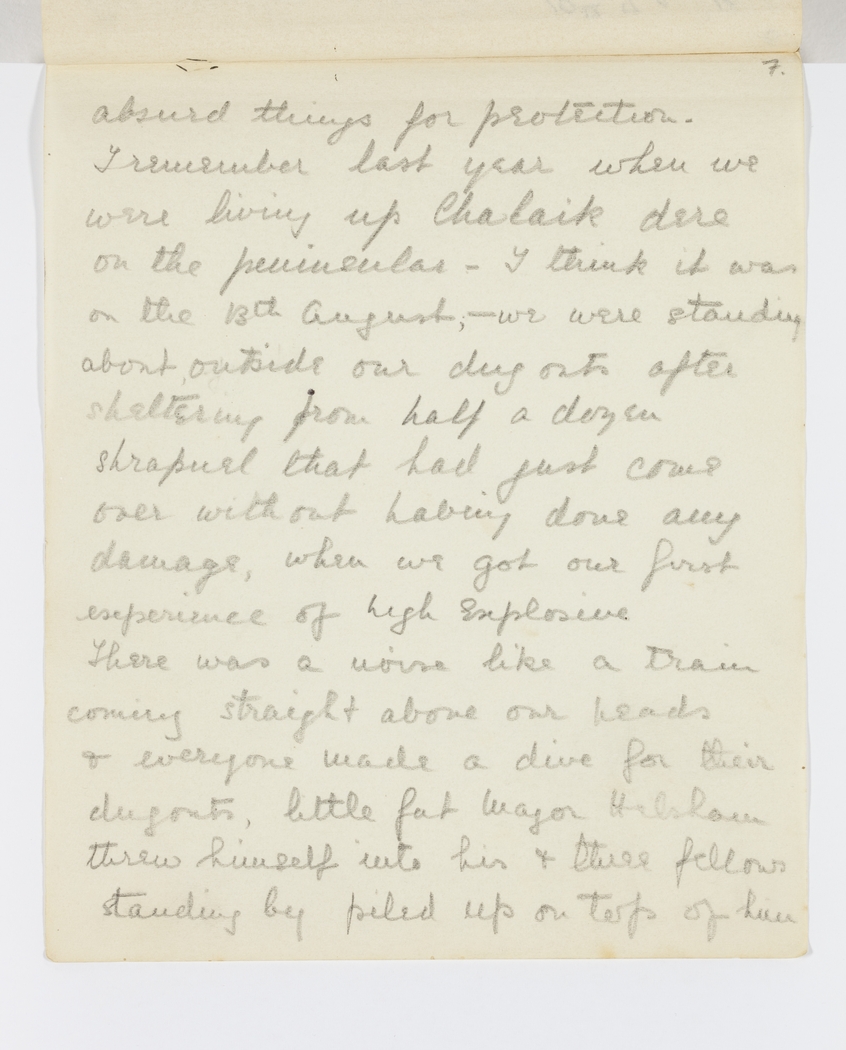 7.
absurd things for protection.
I remember last year when we
were living up Chalaik dere
on the peninsular - I think it was
on the 13th August,-we were standing
about, outside our dug outs after
sheltering from half a dozen
shrapnel that had just come
over without having done any
damage, when we got our first
experience of high Explosive
There was a noise like a train
coming straight above our heads
& everyone made a dive for their
dugouts, little fat Major
threw himself into his & three fellows
standing by piled up on top of him